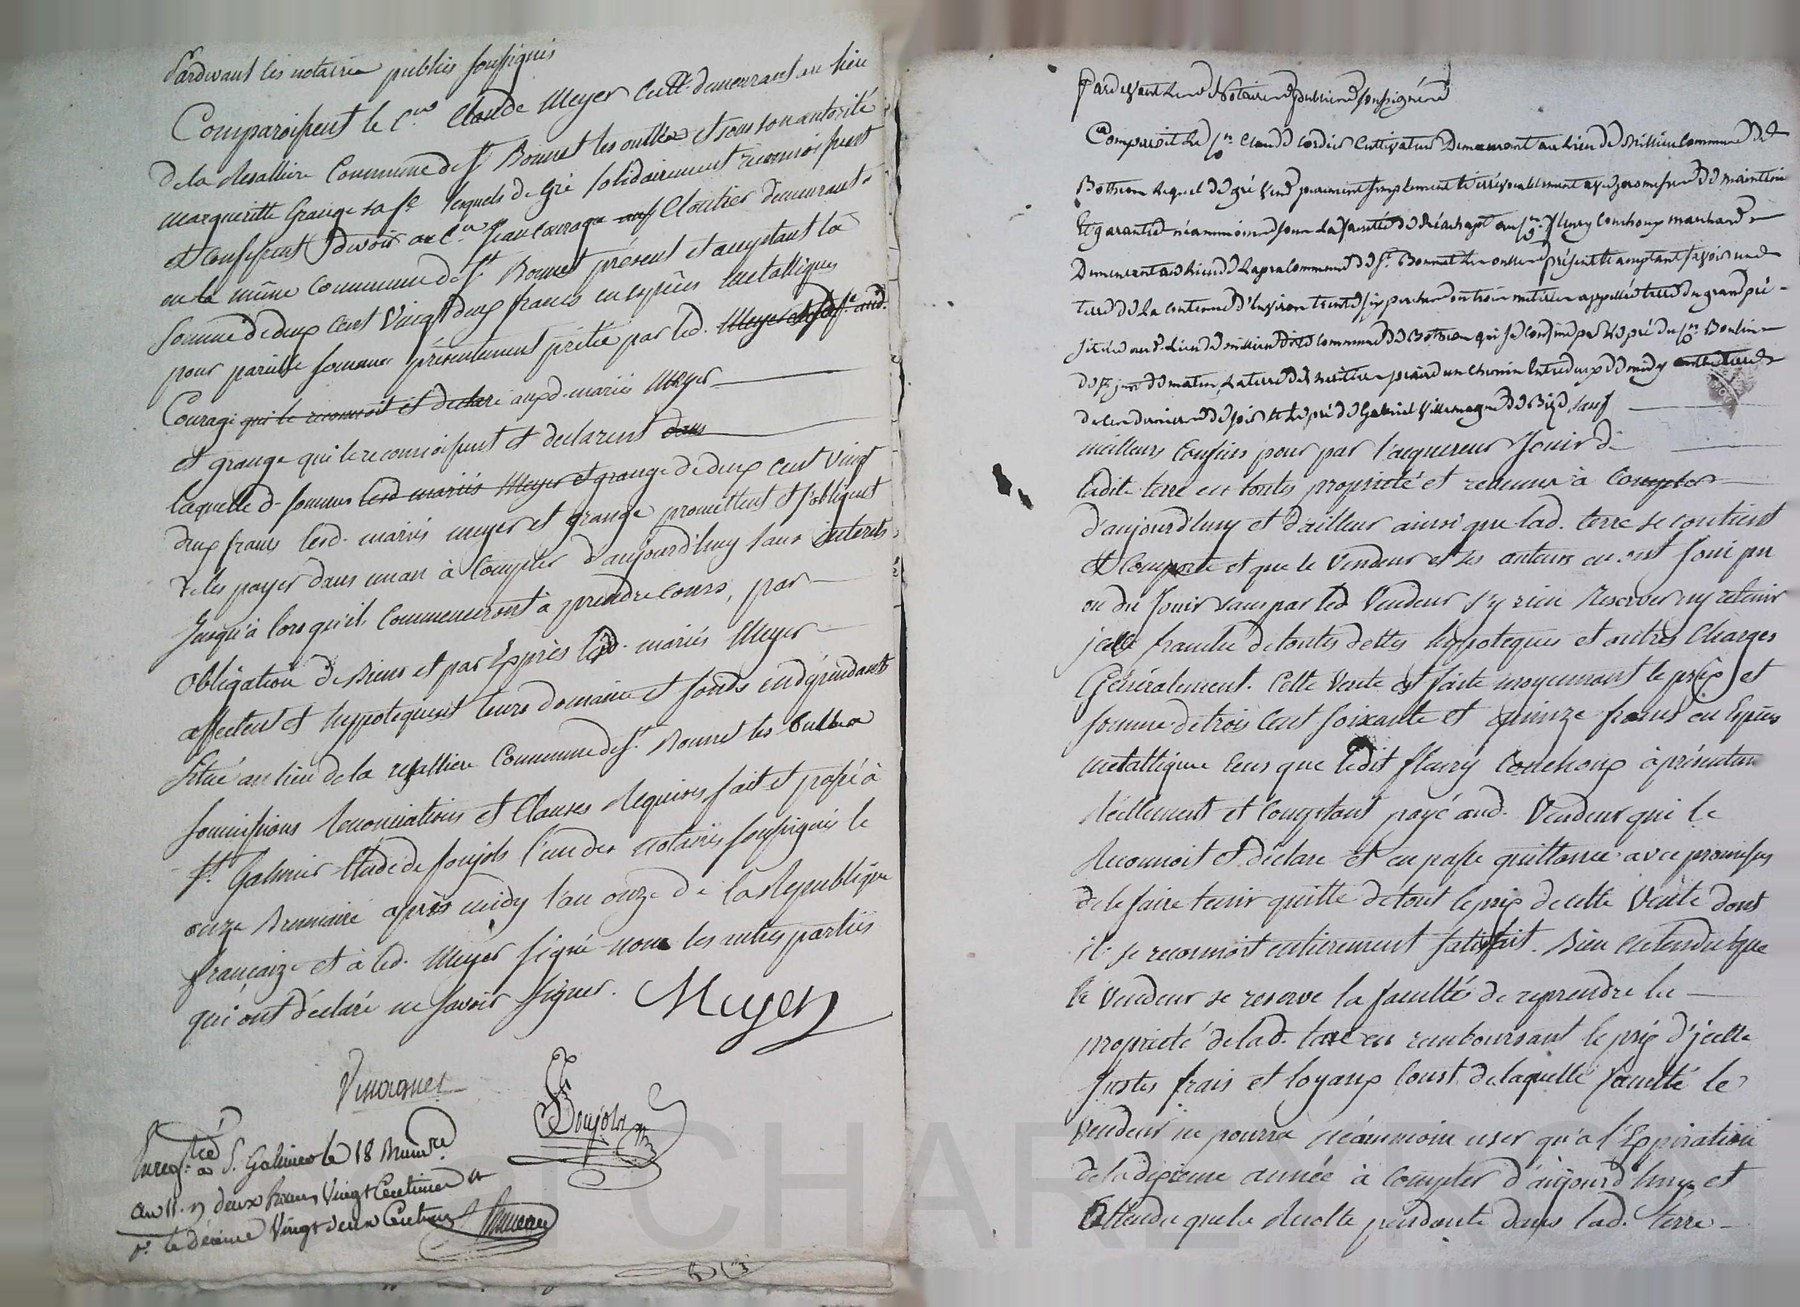 Pardevant les notaires publics soussignés
Comparoissent le C.en Claude Meyer Cult. demeurant au lieu
de la Commune de St. Bonnet les oulles et sous son autorité
margueritte Grange sa fe. lesquels de gré solidairement reconnoissent
et Confessent devoir au C.en Jean Courage Cloutier demeurant
en la même Commune de St. Bonnet présent et acceptant la
somme de deux Cent Vingt deux francs en espèces metalliques
pour pareille somme présentement prêtée par led. Meyer
Courage qui le reconnoit et declare auxd. mariés Meyer
et grange qui le reconnoissent et declarent dans
laquelle d. somme lesd. mariés Meyer et grange de deux Cent Vingt
deux francs lesd. mariés meyer et grange promettent et s'obligent
de les payer dans un an à Compter d'aujourd'huy sans interets
Jusqu'à lors qu'ils Commenceront à prendre Cours, par
Obligation de Biens et par Exprès lesd. mariés Meyer
affectent et hyppotequent leurs domaine et fonds en dépendants
Situé au lieu de la Commune de St. Bonnet les Oulles
soumissions renonciations et Clauses Requises, fait et passé à
St. Galmier Etude de Poujols l'un des notaires soussignés le
onze Brumaire après midy l'an onze de la Republique
françaize et à led. Meyer signé non les autres parties
qui ont déclaré ne savoir signer. Meyer
Poujols
Enreg.tré à St. Galmier le 18 Brum.re
an 11. r deux francs Vingt Centimes et
pr. le décime Vingt deux Centimes
Pardevant les Notaires publics soussignés
Comparoit le C.en Claude Cordier Cultivateur Demeurant au lieu de Commune de
Botheon lequel de gré Vend purement simplement et irrévocablement avec promesse de maintenir
Et garantie néanmoins sous la faculté de réachapt au C.en fleury Couchoux marchand
Demeurant au lieu de Lapra Commune de St. Bonnet les oulles présent et acceptant savoir une
terre de la contenue d'Environ trente six perches ou trois metérées appellée terre du grand pré
située aud. lieu de Commune de Botheon qui se confine par le pré du C.en Boulin
de matin la terre des un Chemin Entredeux de midy
de soir et le pré de Gabriel Villemagne de Bize, sauf
meilleurs Confins pour par l'aquereur Jouir de
ladite terre en toutes propriété et revenus à Compter
d'aujourd'huy et d'ailleur ainsi que lad. terre se contient
et Comporte et que le Vendeur et ses auteurs en ont Joui pu
ou du Jouir sans par led. Vendeur s'y rien Reserver ny retenir
jcelle franche de toutes dettes hyppoteques et autres Charges
Généralement. Cette Vente est faite moyennant le prix et
somme de trois Cent soixante et quinze francs en Espèces
metallique Ceus que ledit fleury Couchoux à présentem
Réellement et Comptant payé aud. Vendeur qui le
Reconnoit et déclare et en passe quittance avec promesses
de le faire tenir quitte de tout le prix de cette Vente dont
il se reconnoit entierement satisfait. Bien entendu que
le Vendeur se reserve la faculté de reprendre la
propriété de lad. terre en remboursant le prix d'jcelle
Justes frais et loyaux Coust. de laquelle faculté le
Vendeur ne pourra néanmoin user qu'à l'Expiration
de la dixieme année à Compter d'aujourd'huy et
Attendu que la Recolte pendante dans lad. terre
CHAREYRON